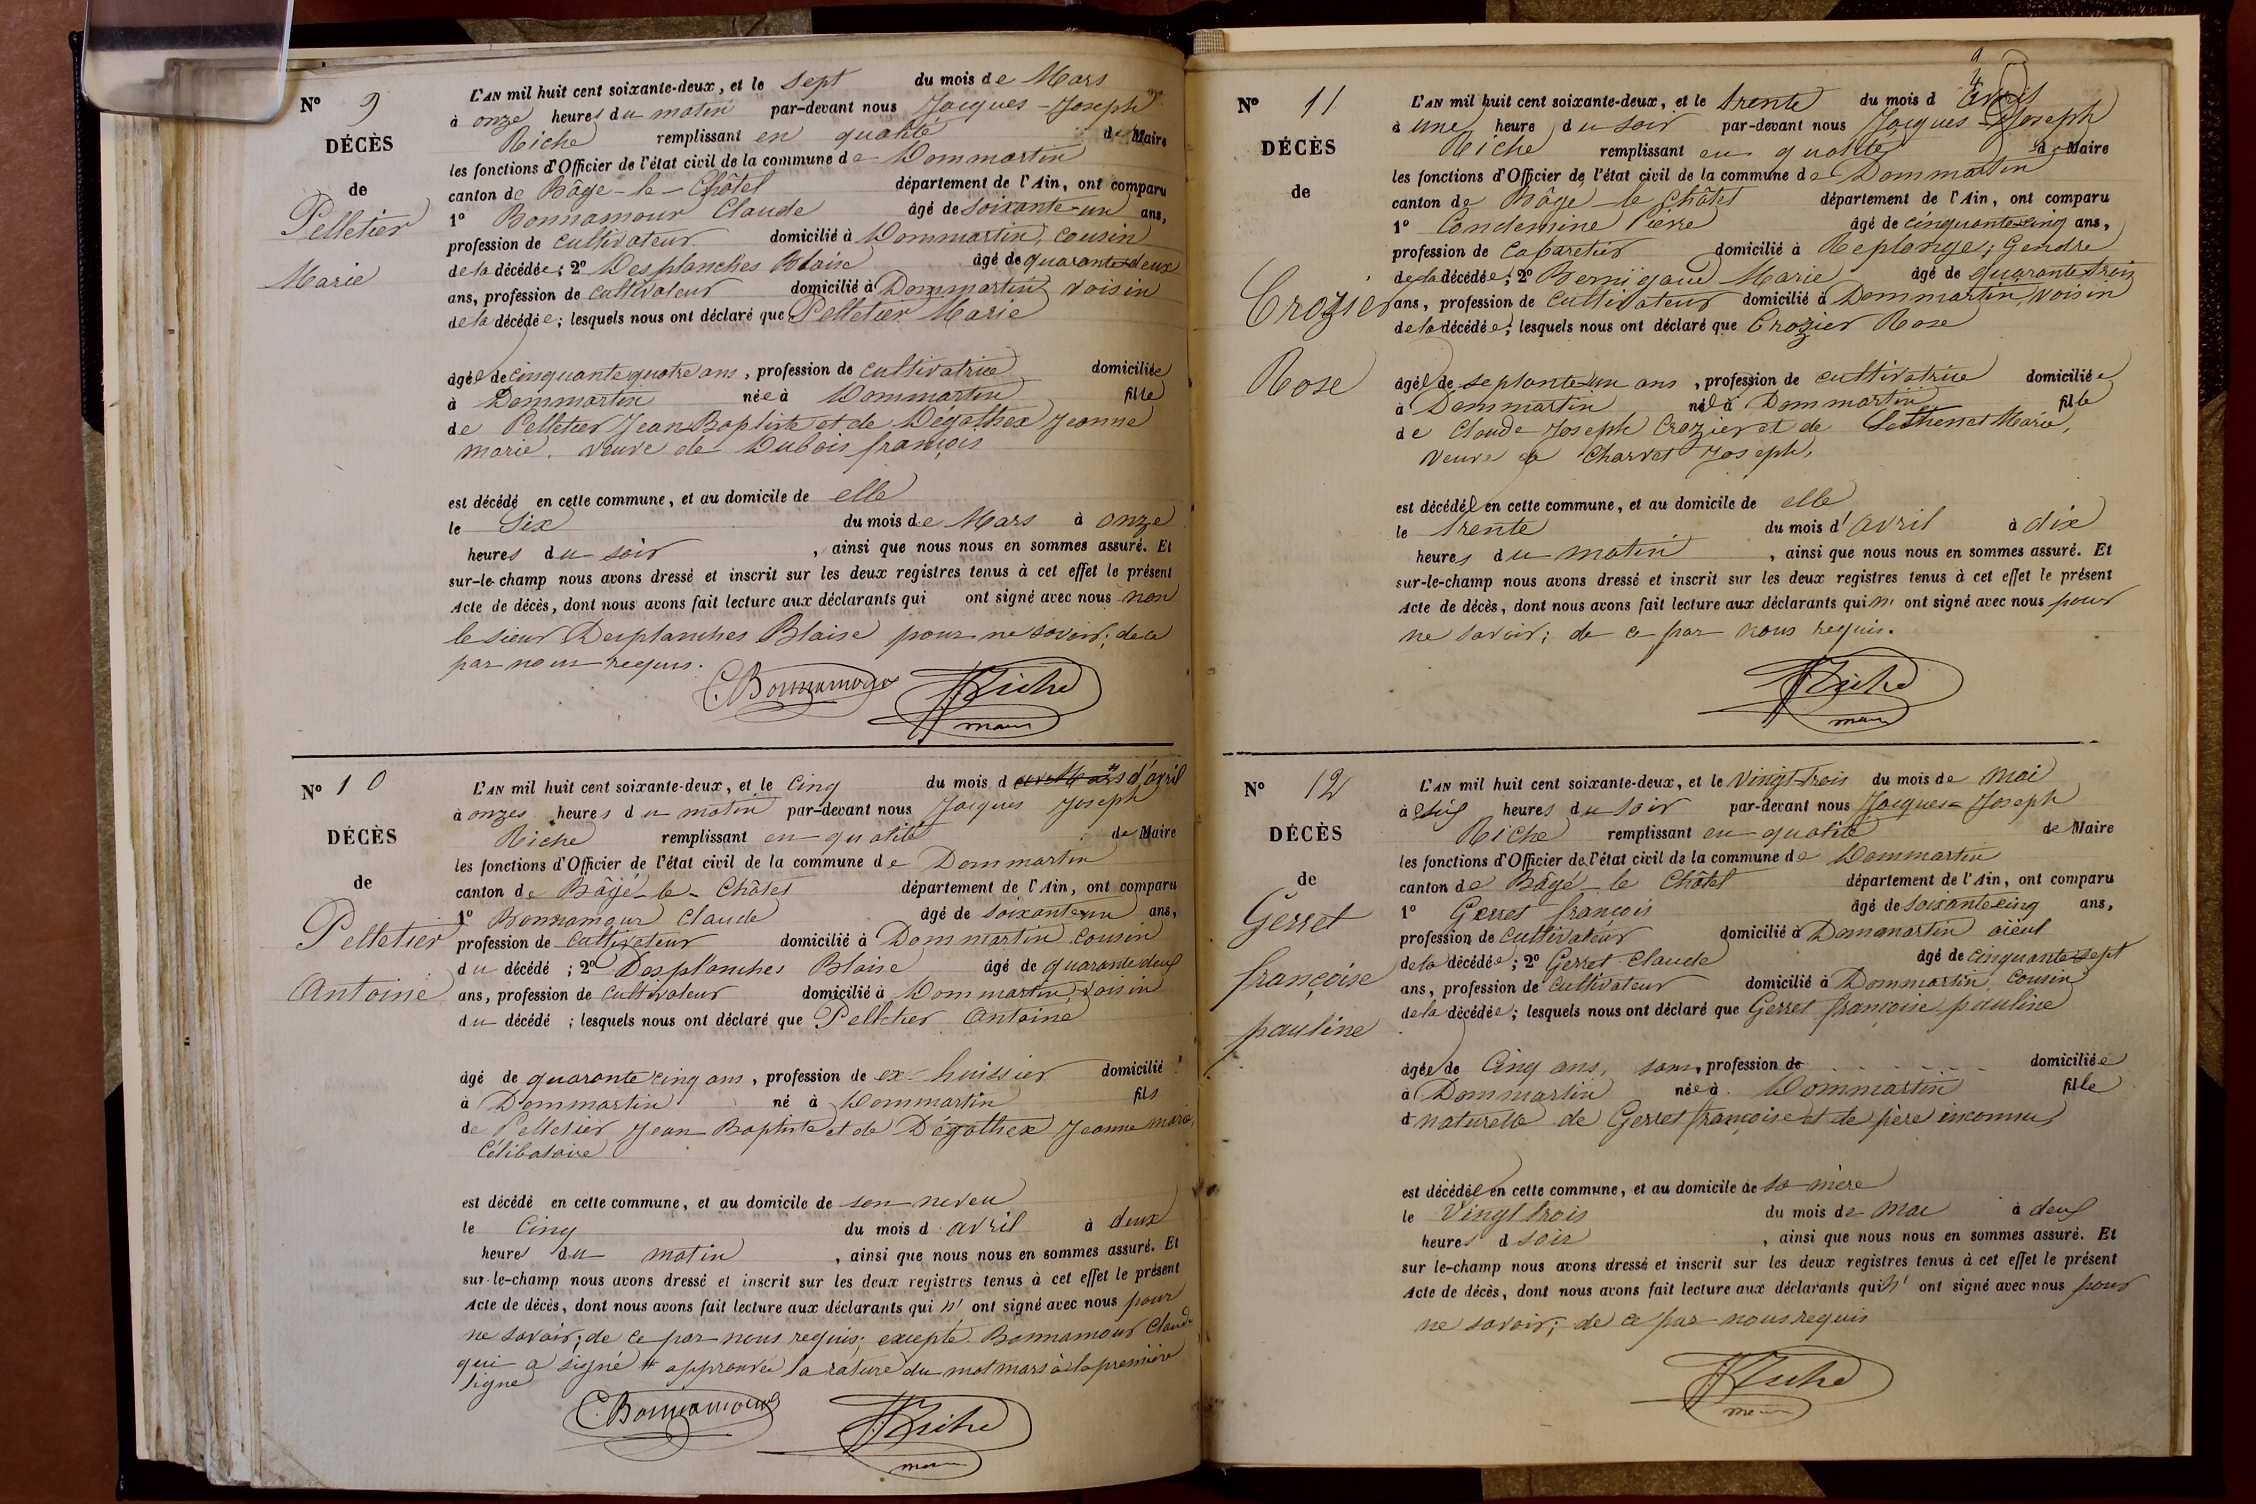 N° 9
DÉCÈS
de
Pelletier
Marie
L'AN mil huit cent soixante-deux, et le sept du mois de Mars
à onze heures du matin par-devant nous Jacques-Joseph
Riche remplissant en qualité de Maire
les fonctions d'Officier de l'état civil de la commune de Dommartin
canton de Bâgé-le-Châtel département de l'Ain, ont comparu
1° Bonnamour Claude âgé de soixante-un ans,
profession de cultivateur domicilié à Dommartin, cousin
de la décédée; 2° Desplanches Blaise âgé de quarante-deux
ans, profession de cultivateur domicilié à Dommartin, voisin
de la décédée; lesquels nous ont déclaré que Pelletier Marie
âgée de cinquante quatre ans, profession de cultivatrice domiciliée
à Dommartin née à Dommartin fille
de Pelletier Jean Baptiste et de Dégathex Jeanne
marie. veuve de Dubois françois
est décédé en cette commune, et au domicile de elle
le Six du mois de Mars à onze
heures du soir, ainsi que nous nous en sommes assuré. Et
sur-le-champ nous avons dressé et inscrit sur les deux registres tenus à cet effet le présent
Acte de décès, dont nous avons fait lecture aux déclarants qui ont signé avec nous non
le sieur Desplanches Blaise pour ne savoir; de ce
par nous requis.
C. Bonnamour JJ Riche
maire
N° 10
DÉCÈS
de
Pelletier
Antoine
L'AN mil huit cent soixante-deux, et le Cinq du mois d Mars d'avril
à onzes heures du matin par-devant nous Jacques Joseph
Riche remplissant en qualité de Maire
les fonctions d'Officier de l'état civil de la commune de Dommartin
canton de Bâgé-le-Châtel département de l'Ain, ont comparu
1° Bonnamour Claude âgé de soixante-un ans,
profession de cultivateur domicilié à Dommartin cousin
du décédé; 2° Desplanches Blaise âgé de quarante deux
ans, profession de cultivateur domicilié à Dommartin, voisin
du décédé; lesquels nous ont déclaré que Pelletier Antoine
âgé de quarante cinq ans, profession de ex-huissier domicilié
à Dommartin né à Dommartin fils
de Pelletier Jean Baptiste et de Dégathex Jeanne marie,
Célibataire
est décédé en cette commune, et au domicile de son neveu
le Cinq du mois d avril à deux
heures du matin, ainsi que nous nous en sommes assuré. Et
sur-le-champ nous avons dressé et inscrit sur les deux registres tenus à cet effet le présent
Acte de décès, dont nous avons fait lecture aux déclarants qui n' ont signé avec nous pour
ne savoir; de ce par nous requis; excepté Bonnamour Claude
qui a signé # approuvée la rature du mot mars à la première
ligne
C. Bonnamour JJ Riche
maire
N° 11
DÉCÈS
de
Crozier
Rose
L'AN mil huit cent soixante-deux, et le trente du mois d avril
à une heure du soir par-devant nous Jacques-Joseph
Riche remplissant en qualité de Maire
les fonctions d'Officier de l'état civil de la commune de Dommartin
canton de Bâgé-le Châtel département de l'Ain, ont comparu
1° Condemine Pierre âgé de cinquante-cinq ans,
profession de cabaretier domicilié à Replonge; Gendre
de la décédée; 2° Bernigaud Marie âgé de quarante trois
ans, profession de cultivateur domicilié à Dommartin, voisin
de la décédée; lesquels nous ont déclaré que Crozier Rose
âgée de septante-un ans, profession de cultivatrice domiciliée
à Dommartin née à Dommartin fille
de Claude Joseph Crozier et de Marie,
veuve de Charvet Joseph,
est décédée en cette commune, et au domicile de elle
le trente du mois d'avril à dix
heures du matin, ainsi que nous nous en sommes assuré. Et
sur-le-champ nous avons dressé et inscrit sur les deux registres tenus à cet effet le présent
Acte de décès, dont nous avons fait lecture aux déclarants qui n' ont signé avec nous pour
ne savoir; de ce par nous requis.
JJ Riche
maire
N° 12
DÉCÈS
de
Gerret
françoise
pauline
L'AN mil huit cent soixante-deux, et le vingt-trois du mois de mai
à six heures du soir par-devant nous Jacques-Joseph
Riche remplissant en qualité de Maire
les fonctions d'Officier de l'état civil de la commune de Dommartin
canton de Bâgé-le Châtel département de l'Ain, ont comparu
1° Gerret françois âgé de soixante cinq ans,
profession de cultivateur domicilié à Dommartin aïeul
de la décédée; 2° Gerret Claude âgé de cinquante-sept
ans, profession de cultivateur domicilié à Dommartin, cousin
de la décédée; lesquels nous ont déclaré que Gerret françoise pauline
âgée de Cinq ans, sans, profession de domiciliée
à Dommartin née à Dommartin fille
d naturelle de Gerret françoise et de père inconnu
est décédée en cette commune, et au domicile de sa mère
le Vingt trois du mois de mai à deux
heures d soir, ainsi que nous nous en sommes assuré. Et
sur le-champ nous avons dressé et inscrit sur les deux registres tenus à cet effet le présent
Acte de décès, dont nous avons fait lecture aux déclarants qui n' ont signé avec nous pour
ne savoir; de ce par nous requis
JJ Riche
maire